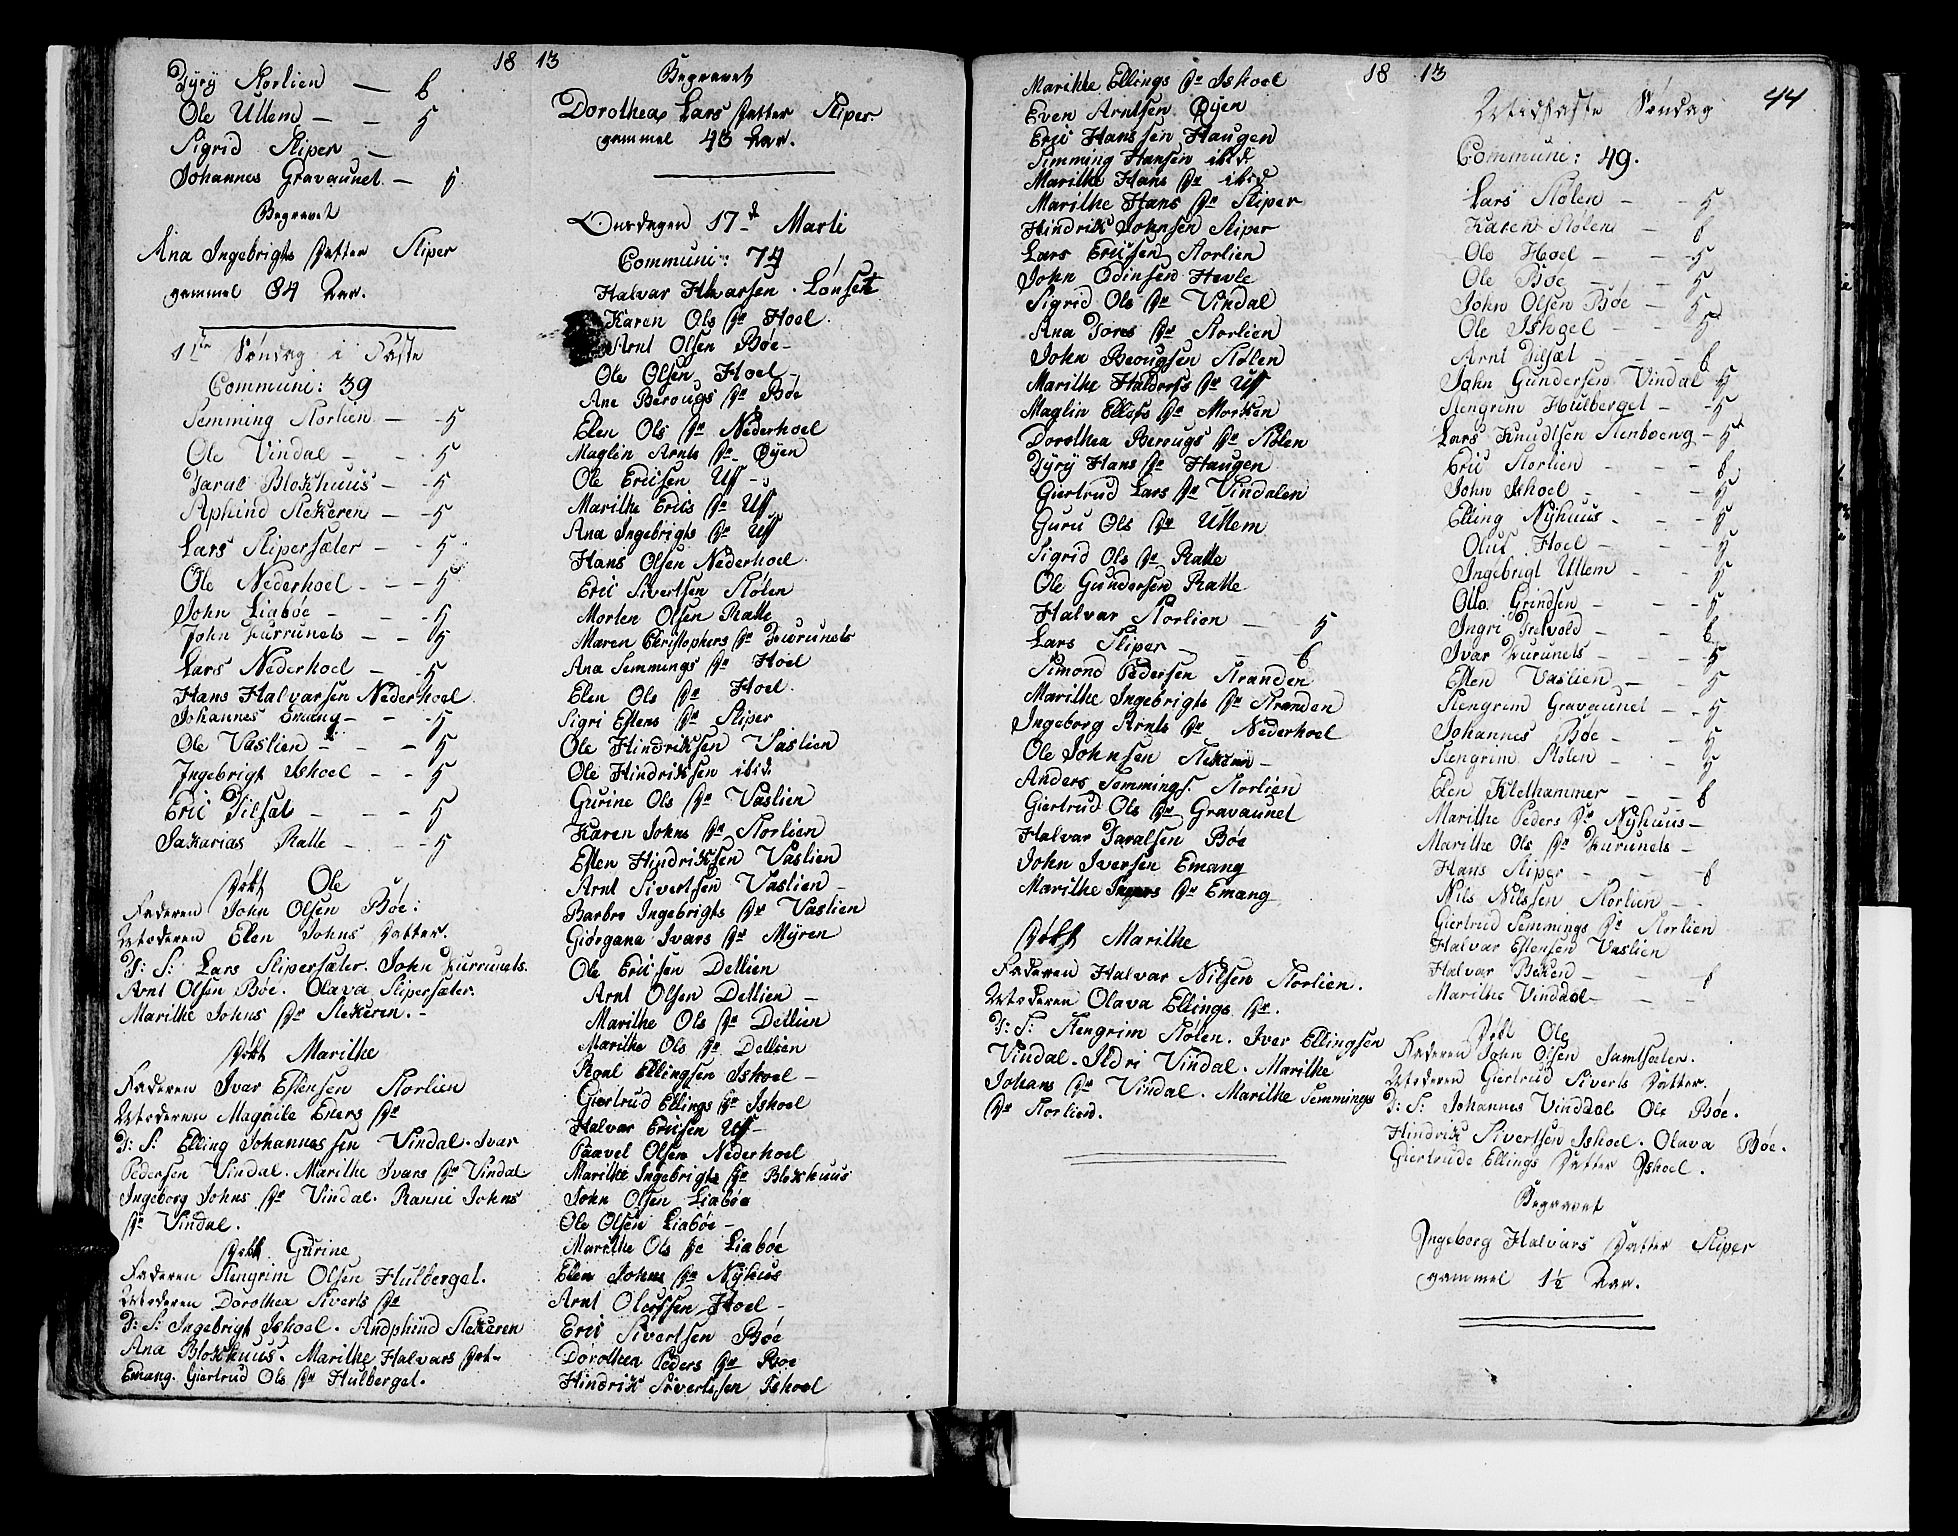 18 13
Jyry Storlien — 6
Ole Uttem — — 5
Sigrid Sliper —
Johannes Gravaunet — 5
Begravet
Ana Ingebrigts Datter Sliper
gammel 84 Aar.
1ste Søndag i Faste
Communi: 39
Semming Storlien — 5
Ole Vindal — — 5
Taral Blokhuus — 5
Aphind Stekeren — 5
Lars Slipersæter — 5
Ole Nederhoel — — 5
John Liabøe — — 5
John Furrunets — — 5
Lars Nederhoel — — 5
Hans Halvarsen Nederhoel
Johannes Emang — — 5
Ole Vastien — — — 5
Ingebrigt Ishoel — — 5
Eric Tilsat — — — 5
Sakarias Ratte — — 5
Døbt Ole
Faderen John Olsen Bøe:
Moderen Elen Johns Datter.
T: S: Lars Slipersæter. John Furrunets.
Arnt Olsen Bøe. Olava Slipersæter.
Marithe Johns Dr Stekeren. -
Døbt Marithe
Faderen Ivar Estensen Storlien
Moderen Magnile Eners Dr
T: S: Elling Johannessen Vindal. Ivar
Pedersen Vindal. Marithe Ivars Dr Vindal
Ingeborg Johns Dr Vindal. Ranni Johns
Dr Vindal.
Døbt Gurine
Faderen Stengrim Olsen Hulberget.
Moderen Dorothea Siverts Dr
T: S: Ingebrigt Ishoel. Andphind Stekeren
Ana Blokhuus. Marithe Halvars Dat-
Emang. Giertrud Ols Dr Hulberget.
Begravet
Dorothea Lars Datter Sliper
gammel 43 Aar.
Onsdagen 17d Marti
Communi: 74
Halvar Halvarsen Lønset
Karen Ols Dr Hoel.
Arnt Olsen Bøe -
Ole Olsen Hoel -
Ane Berougs Dr Bøe
Elen Ols Dr Nederhoel
Maglin Arnts Dr Øyen
Ole Ericsen Uff -
Marithe Erics Dr Uff
Ana Ingebrigts Dr Uff
Hans Olsen Nederhoel
Eric Sivertsen Stølen
Morten Olsen Ratte
Maren Christophers Dr Furunets
Ana Semmings Dr Hoel
Elen Ols Dr Hoel.
Sigri Estens Dr Sliper
Ole Hindriksen Vastien
Ole Hindriksen ibid
Gurine Ols Dr Vastien
Karen Johns Dr Storlien
Esten Hindriksen Vastien
Arnt Sivertsen Vastien -
Barbro Ingebrigts Dr Vastien
Giørgana Ivars Dr Myren
Ole Ericsen Detlien
Arnt Olsen Detlien —
Marithe Ols Dr Detlien
Marithe Ols Dr Detlien
Roal Ellingsen Ishoel -
Giertrud Ellings Dr Ishoel
Halvar Ericsen Uff -
Paavel Olsen Nederhoel
Marithe Ingebrigts Dr Blokhuus
John Olsen Liabøe
Ole Olsen Liabøe -
Marithe Ols Dr Liabøe
Elen Johns Dr Nyhus
Arnt Olufsen Hoel -
Eric Sivertsen Bøe
Dorothea Peders Dr Bøe
Hindrik Sivertsen Ishoel
18 13
44
Marithe Ellings Dr Ishoel
Even Arntsen Øyen
Eric Hanssen Haugen
Simming Hansen ibid
Marithe Hans Dr ibid
Marithe Hans Dr Sliper
Hindrik Johnsen Sliper
Lars Ericsen Storlien
John Odinsen Hevle
Sigrid Ols Dr Vindal
Ana Tores Dr Storlien
John Berougsen Stølen
Marithe Haldors Dr Uff
Maglin Ellefs Dr Morken
Dorothea Berougs Dr Stølen
Jyry Hans Dr Haugen
Giertrud Lars Dr Vindalen
Guru Ols Dr Uttem
Sigrid Ols Dr Ratte
Ole Gundersen Ratte
Halvar Storlien — 5
Lars Sliper — — 6
Simond Pedersen Stranden
Marithe Ingebrigts Dr Stranden
Ingeborg Arnts Dr Nederhoel
Ole Johnsen Stekeren -
Anders Semmings. Storlien
Giertrud Ols Dr Gravaunet
Halvar Taralsen Bøe
John Iversen Emang
Marithe Ingers Dr Emang
Døbt Marithe
Faderen Halvar Nilsen Storlien.
Moderen Olava Ellings Dr.
T: S: Stengrim Stølen. Iver Ellingsen
Vindal. Sidri Vindal. Marithe
Johans Dr Vindal. Marithe Semmings
Dr Storlien.
Midfaste Søndag
Communi: 49.
Lars Stølen — — 5
Karen Stølen — 6
Ole Hoel — — 5
Ole Bøe — — 5
John Olsen Bøe — 5
Ole Ishoel — — 5
Arnt Tilsæt — — — 6
John Gundersen Vindal 5
Stengrim Hulberget — 5
Lars Knudtsen Stenboeng — 5
Eric Storlien — — — 6
John Ishoel — — — 5
Elling Nyhuus — — — 5
Oluf Hoel — — — 5
Ingebrigt Uttem — — 5
Otto Grindsen — — 5
Ingri Tretvold — — 6
Ivar Furunets — — — 5
Esten Vastien — — 5
Stengrim Gravaunet — — 5
Johannes Bøe — — 5
Stengrim Stølen — — 5
Elen Klethammer — — 6
Marithe Peders Dr Nyhuus —
Marithe Ols Dr Furunets —
Hans Sliper — — — 6
Nils Nilssen Storlien — -
Giertrud Semmings Dr Storlien
Halvar Estensen Vastien
Halvar Beken — — — 6
Marithe Vinddal — —
Døbt Ole
Faderen John Olsen Jamtsæter.
Moderen Giertrud Siverts Datter.
T: S: Johannes Vinddal Ole Bøe.
Hindrik Sivertsen Ishoel. Olava Bøe.
Giertrude Ellings Datter Ishoel.
Begravet
Ingeborg Halvars Datter Sliper
gammel 1½ Aar.